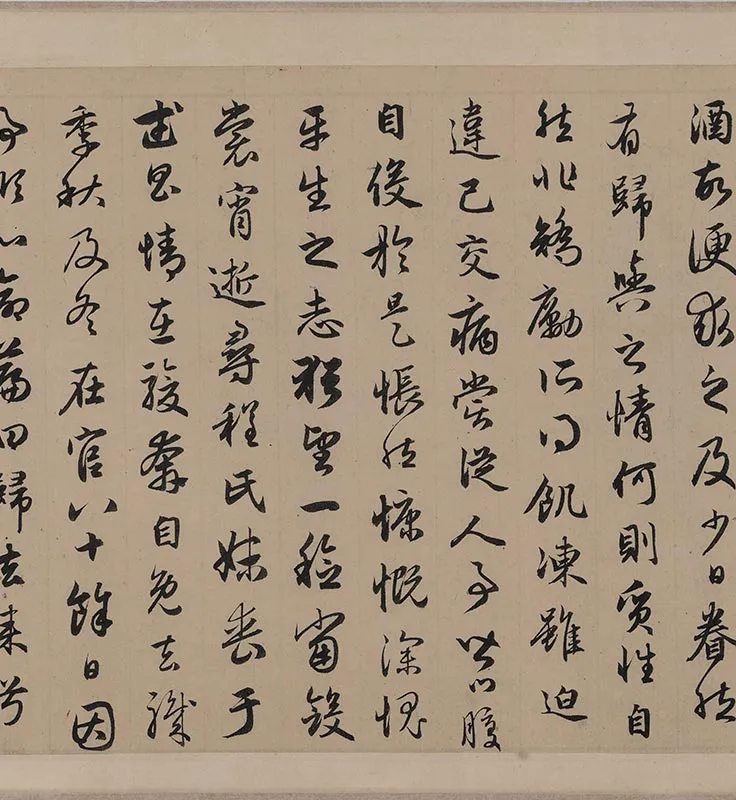 酒故便求之及少日眷然
有歸與之情何則質性自
然非矯勵所得飢凍雖迫
違己交病嘗從人事皆口腹
自役於是悵然慷慨深愧
平生之志猶望一稔當斂
裳宵逝尋程氏妹喪于
武昌情在駿奔自免去職
季秋及冬在官八十餘日因
事順心命篇曰歸去來兮